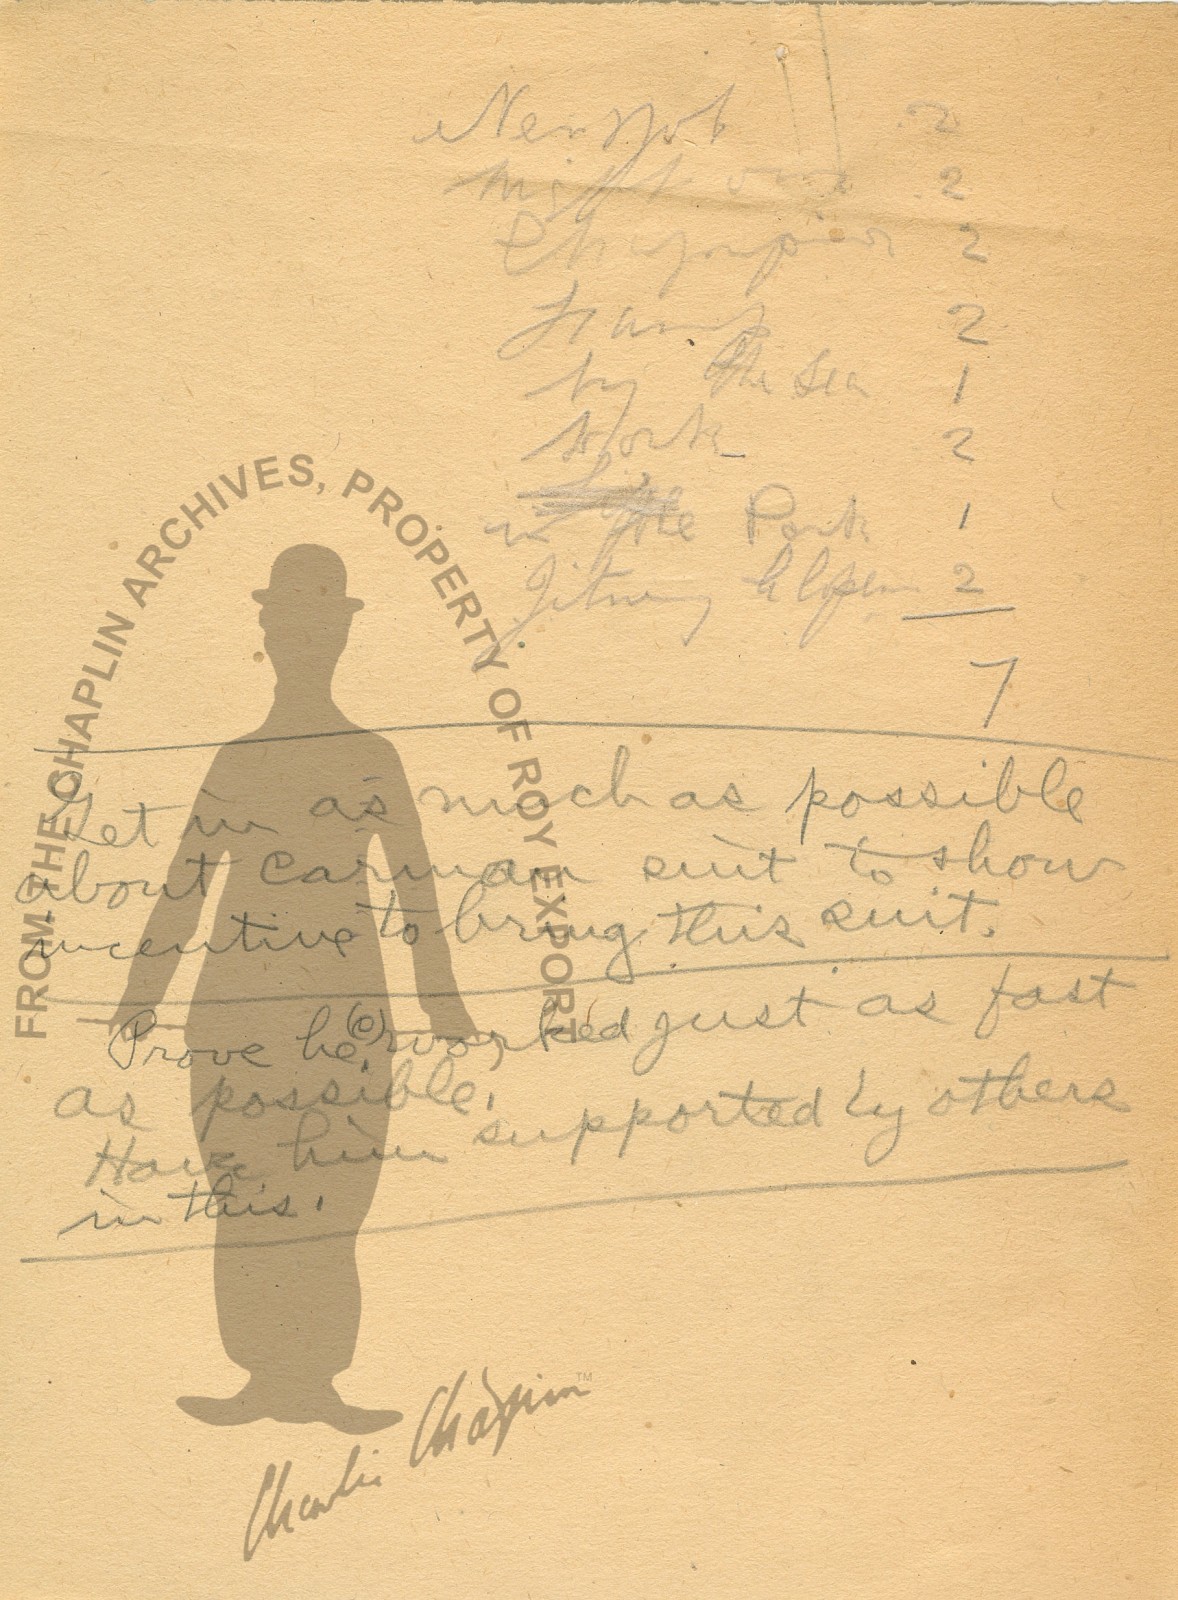 New Job 2
Night Out 2
Champion 2
Tramp 2
by the Sea 1
Work 2
in the Park 1
Jitney Elopem 2
7
Get in as much as possible
about Carman suit to show
incentive to bring this suit.
Prove he (c) worked just as fast
as possible.
Have him supported by others
in this.
FROM THE CHAPLIN ARCHIVES, PROPERTY OF ROY EXPORT
Charlie Chaplin ™